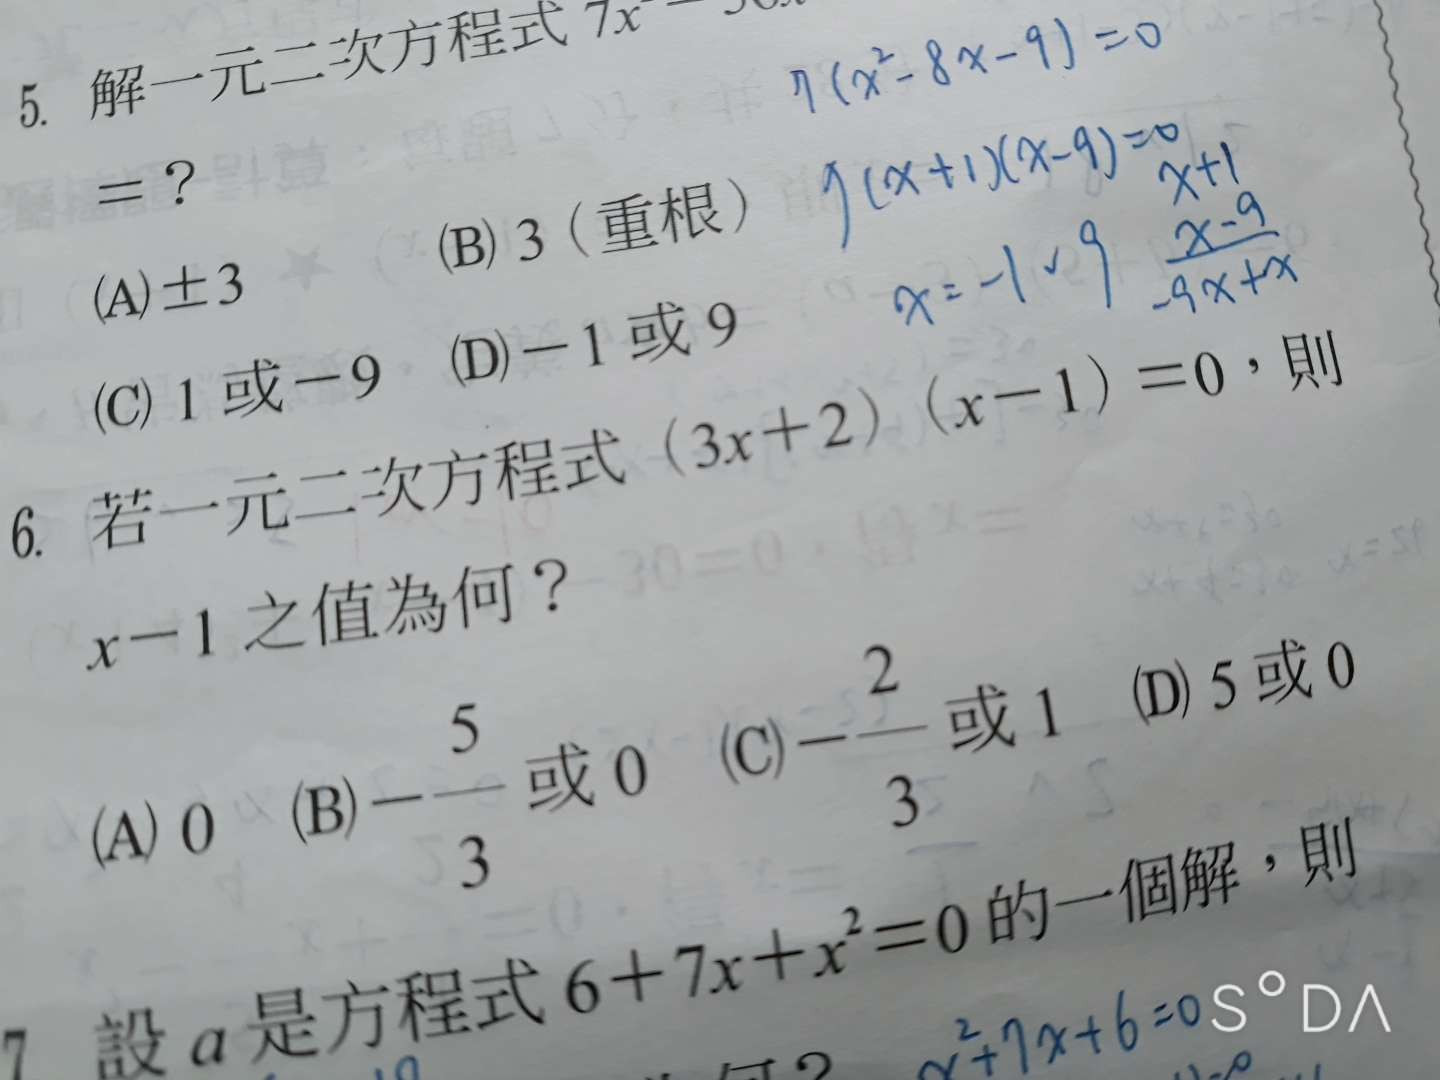 5. 解一元二次方程式 7x²－56x
7(x²-8x-9)=0
＝？
7(x+1)(x-9)=0
x+1
x-9
-9x+x
x=-1、9
(A)±3 (B) 3（重根）
(C) 1 或－9 (D)－1 或 9
6. 若一元二次方程式（3x＋2）（x－1）＝0，則
x－1 之值為何？
(A) 0 (B)－5/3 或 0 (C)－2/3 或 1 (D) 5 或 0
7 設 a 是方程式 6＋7x＋x²＝0 的一個解，則
x²+7x+6=0
何？
S°DA